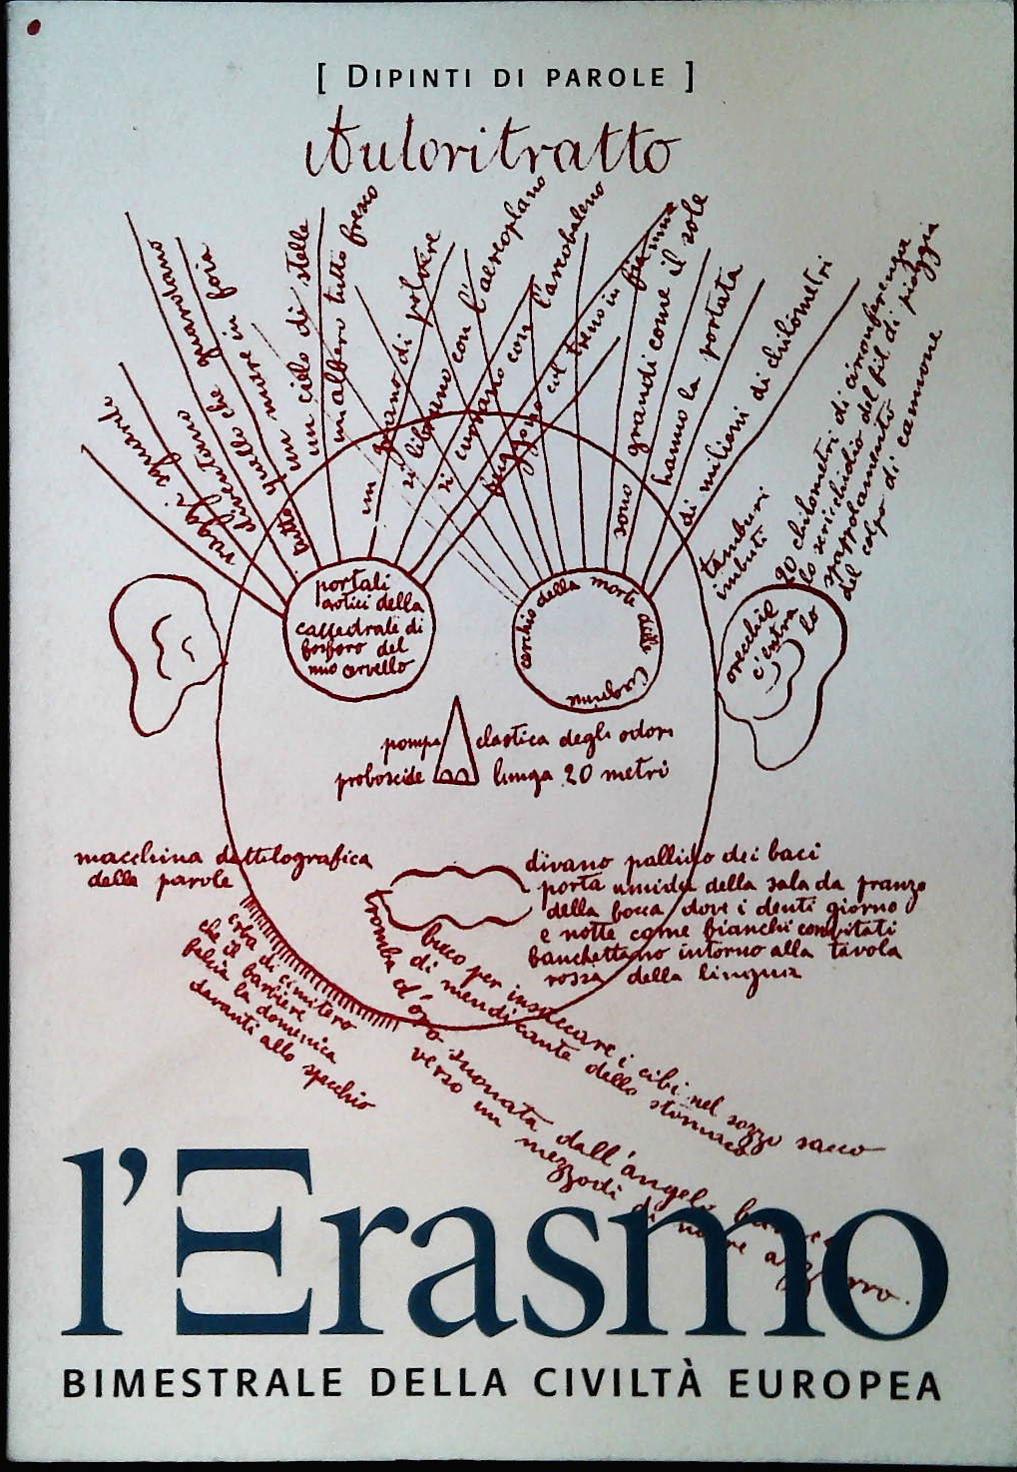 [ DIPINTI DI PAROLE ]
Autoritratto
raggi sguardi
diventano
quello che guardano
tutto
un mare in foia
un cielo di stelle
un albero tutto freno
un grano di polvere
si librano con l'aereoplano
si curvano con l'arcobaleno
fuggono col treno in fiamme
sono grandi come il sole
hanno la portata
di milioni di chilometri
tamburi
imbuti
20 chilometri di circonferenza
lo scricchidio del fil di pioggia
spappolamento
del colpo di cannone
portali
gotici della
cattedrale di
fosforo del
mio cervello
cerchio della morte delle
orecchie
c'entra
lo
pompa elastica degli odori
proboscide lunga 20 metri
macchina dattilografica
della parole
divano pallido dei baci
porta umida della sala da pranzo
della bocca dove i denti giorno
e notte come bianchi convitati
banchettano intorno alla tavola
rossa della lingua
erba di cimitero
che il barbiere
falcia la domenica
davanti allo specchio
buco per insaccare i cibi nel sozzo sacco
di mendicante dello stomaco
tromba d'oro suonata dall'angelo
verso un mezzodì di mare azzurro.
l'Erasmo
BIMESTRALE DELLA CIVILTÀ EUROPEA